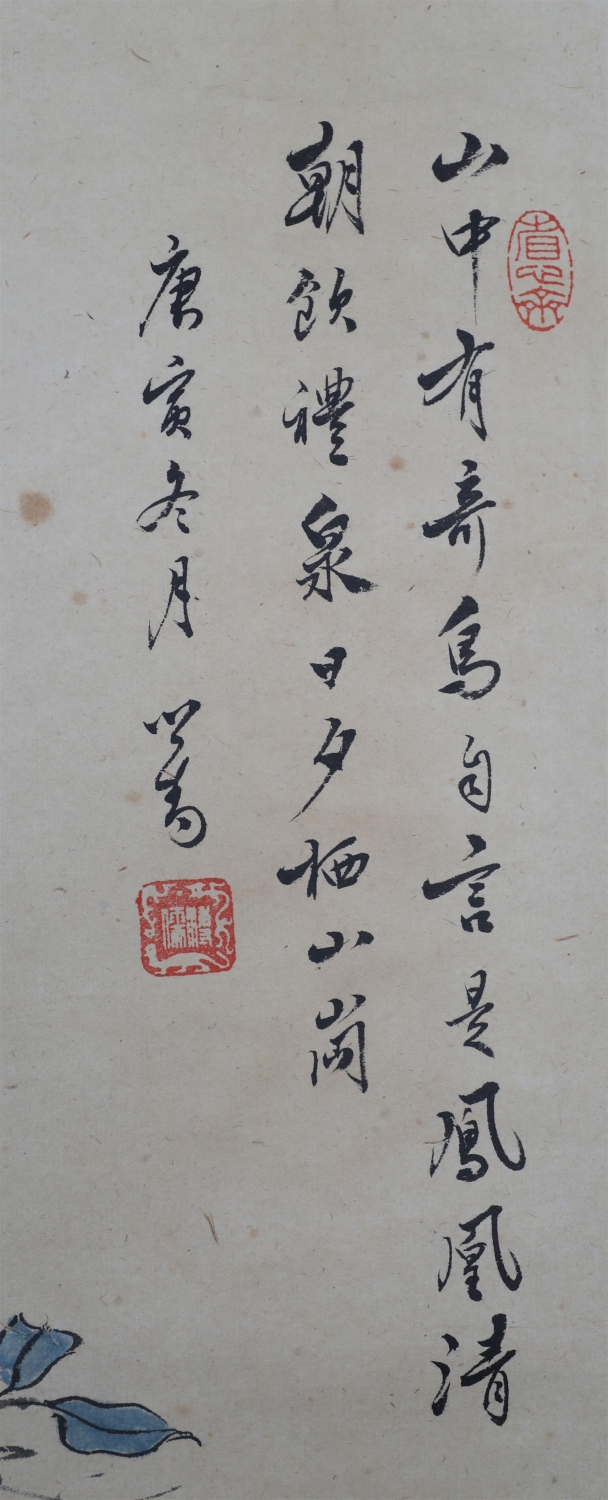 山中有奇鳥自言是鳳凰清
朝飲禮泉日夕栖山岡
庚寅冬月心畬